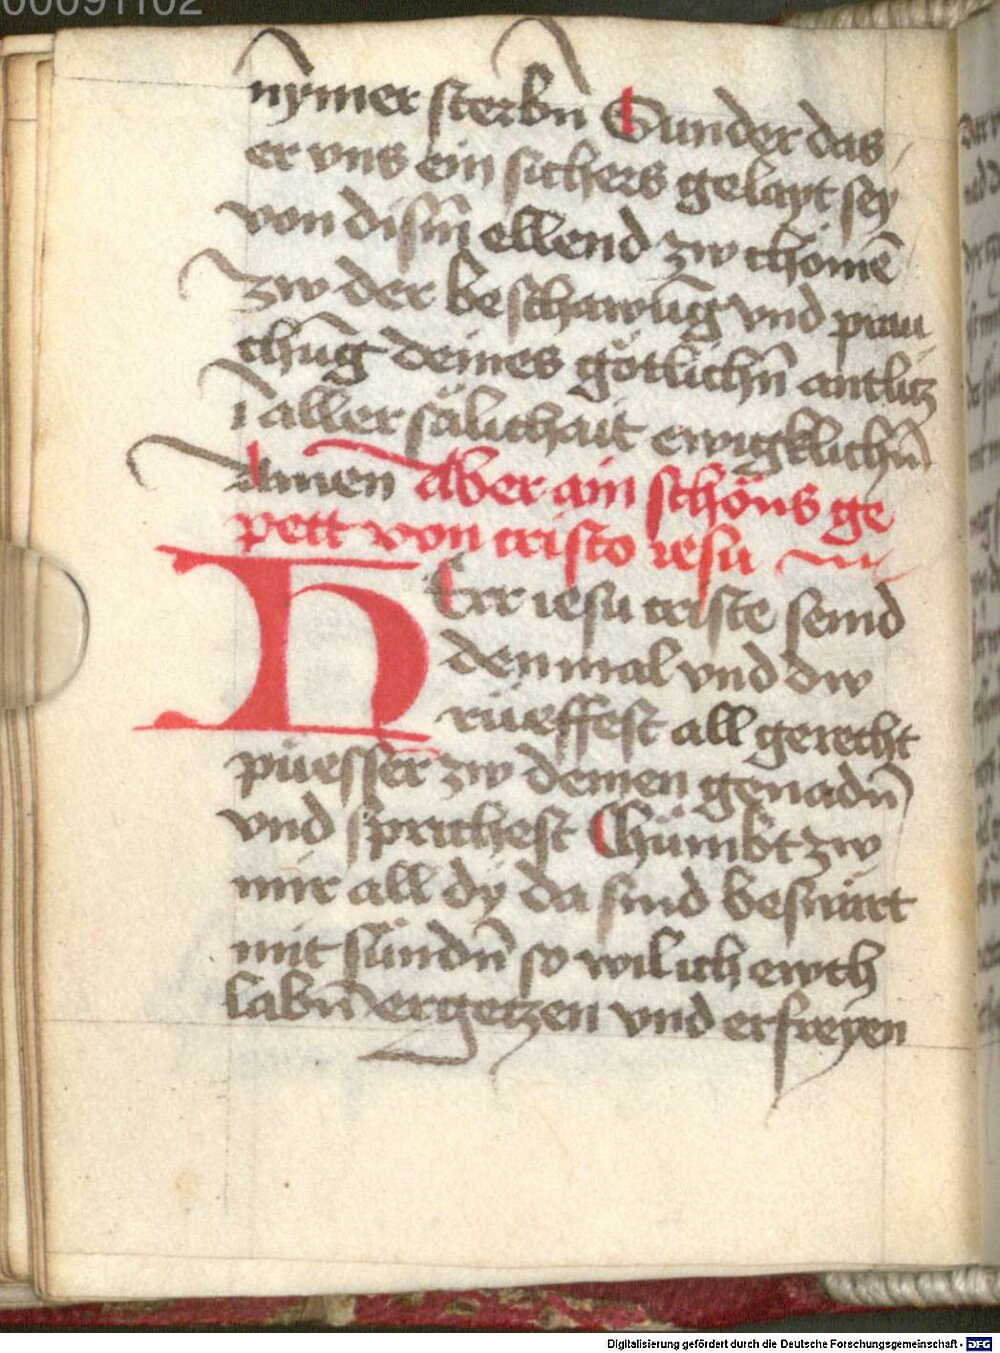 00091102
nÿmer sterbn̄ Sunder das
er vns ein sichers gelayt sey
von dism̄ ellend zw chömē
zw der beschawūg vnd prau
chūg deines götlichn̄ antlitz
ī aller sälichait ewigklichn̄
Amen Aber ain schöns ge
pett von cristo iesu
HErr iesu criste seind
den mal vnd dw
rüeffest all gerecht
püesser zw deinen genadn̄
vnd sprichest Chümbt zw
mir all dy da sind beswärt
mit sündn̄ so wil ich ewch
labn̄ ergetzen vnd erfreyen
Digitalisierung gefördert durch die Deutsche Forschungsgemeinschaft - DFG